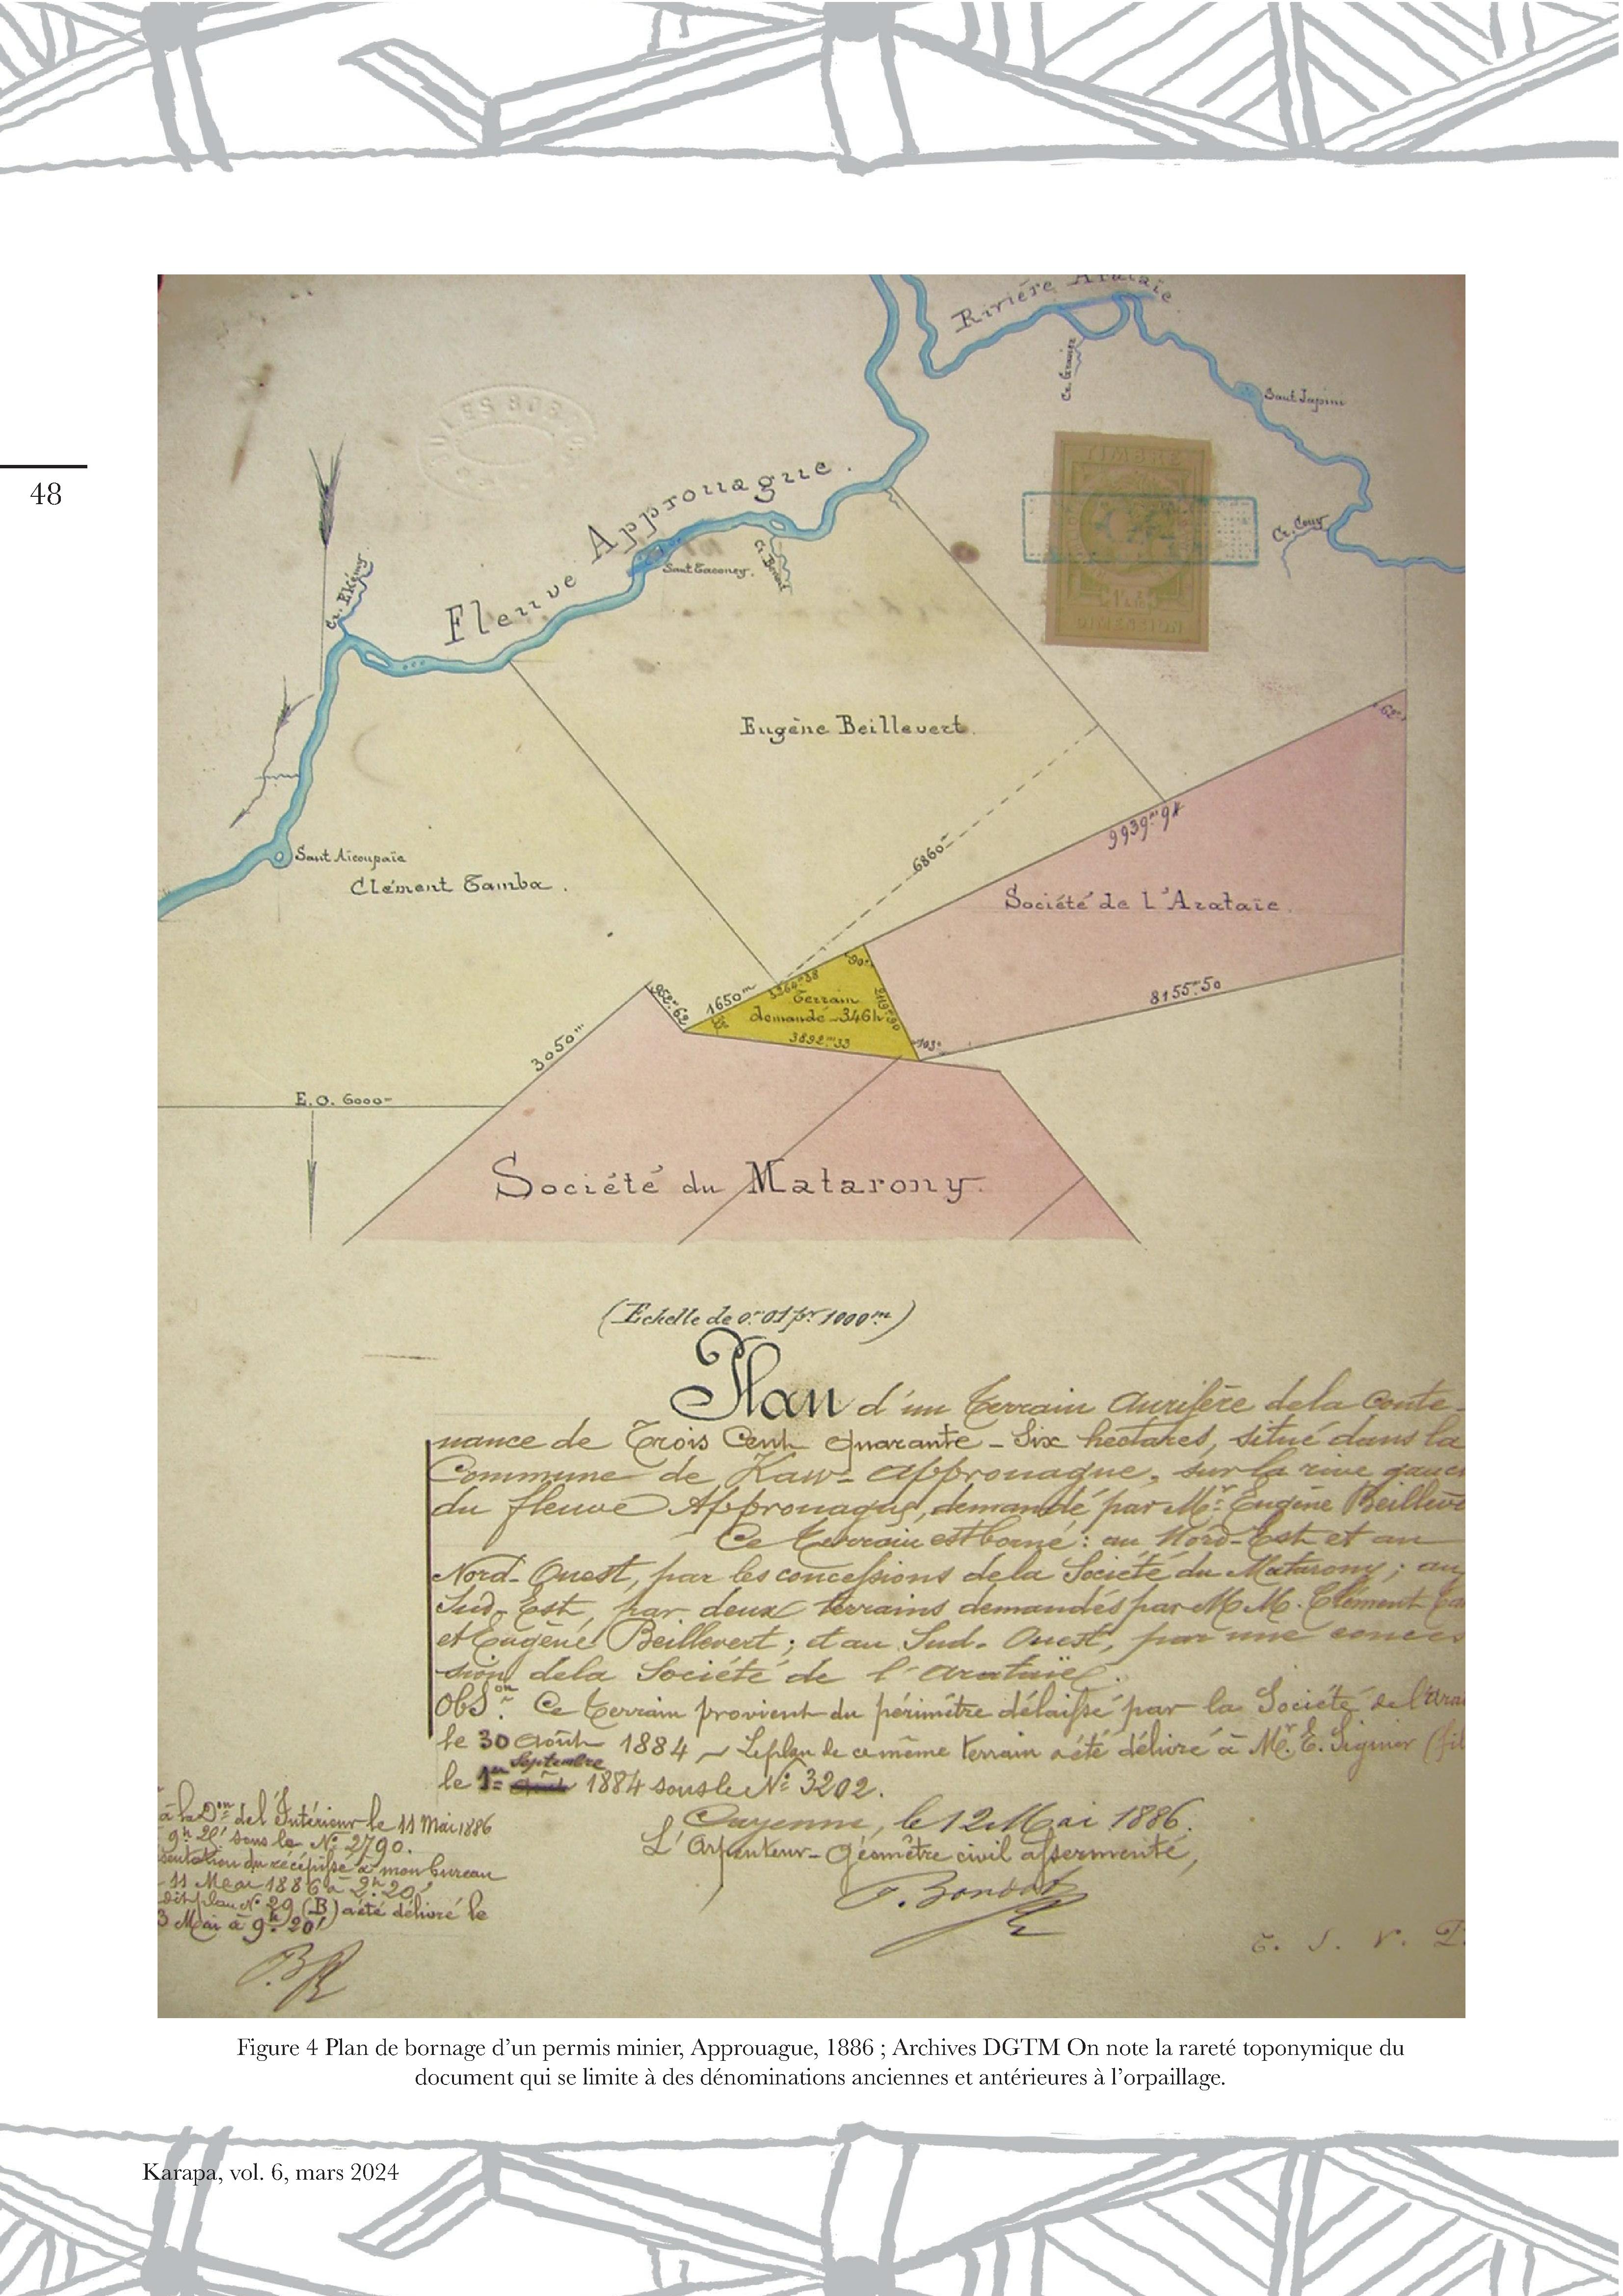 48
Rivière Arataïe
Cr. Ekémy
Fleuve Approuague.
Saut Japini
TIMBRE
DIMENSION
Cr. Couy
Saut Taconey.
Eugène Beillevert.
62°
9939.m94
6860m
Saut Aïcoupaïe
Clément Tamba.
Société de L'Arataïe.
952m62
1650m
90°
Terrain
demandé 346h
3892.m33
103°
8155m50
3050m
E.O. 6000m
Société du Matarony.
(Echelle de 0m01 pr 1000m)
Plan d'un Terrain Aurifère dela Conte-
nance de Trois Cent quarante-Six hectares, situé dans la
Commune de Kaw-Approuague, sur la rive gauc
du fleuve Approuague, demandé par Mr. Eugène Beilleve
Ce terrain est borné: au Nord-Est et au
Nord-Ouest, par les concessions dela Société du Matarony; au
Sud-Est, par deux terrains demandés par M M. Clément Ta
et Eugène Beillevert; et au Sud-Ouest, par une conces
sion dela Société de l'Arataïe.
Obson. Ce terrain provient du périmètre délaissé par la Société de l'Ara
le 30 Août 1884 - Le plan de ce même terrain a été délivré à Mr. E. Siguier (fil
Septembre
le 1er Août 1884 sous le No 3202.
Cayenne, le 12 Mai 1886.
L'Arpenteur-Géomètre civil assermenté,
à la Don de l'Intérieur le 11 Mai 1886
9h 20' sous le No 2790.
sentation du récépissé à mon bureau
11 Mai 1886 à 9h.20'
dit plan No 29 (B) a été délivré le
3 Mai à 9h.20'
T. S. V. P.
Figure 4 Plan de bornage d'un permis minier, Approuague, 1886 ; Archives DGTM On note la rareté toponymique du
document qui se limite à des dénominations anciennes et antérieures à l'orpaillage.
Karapa, vol. 6, mars 2024